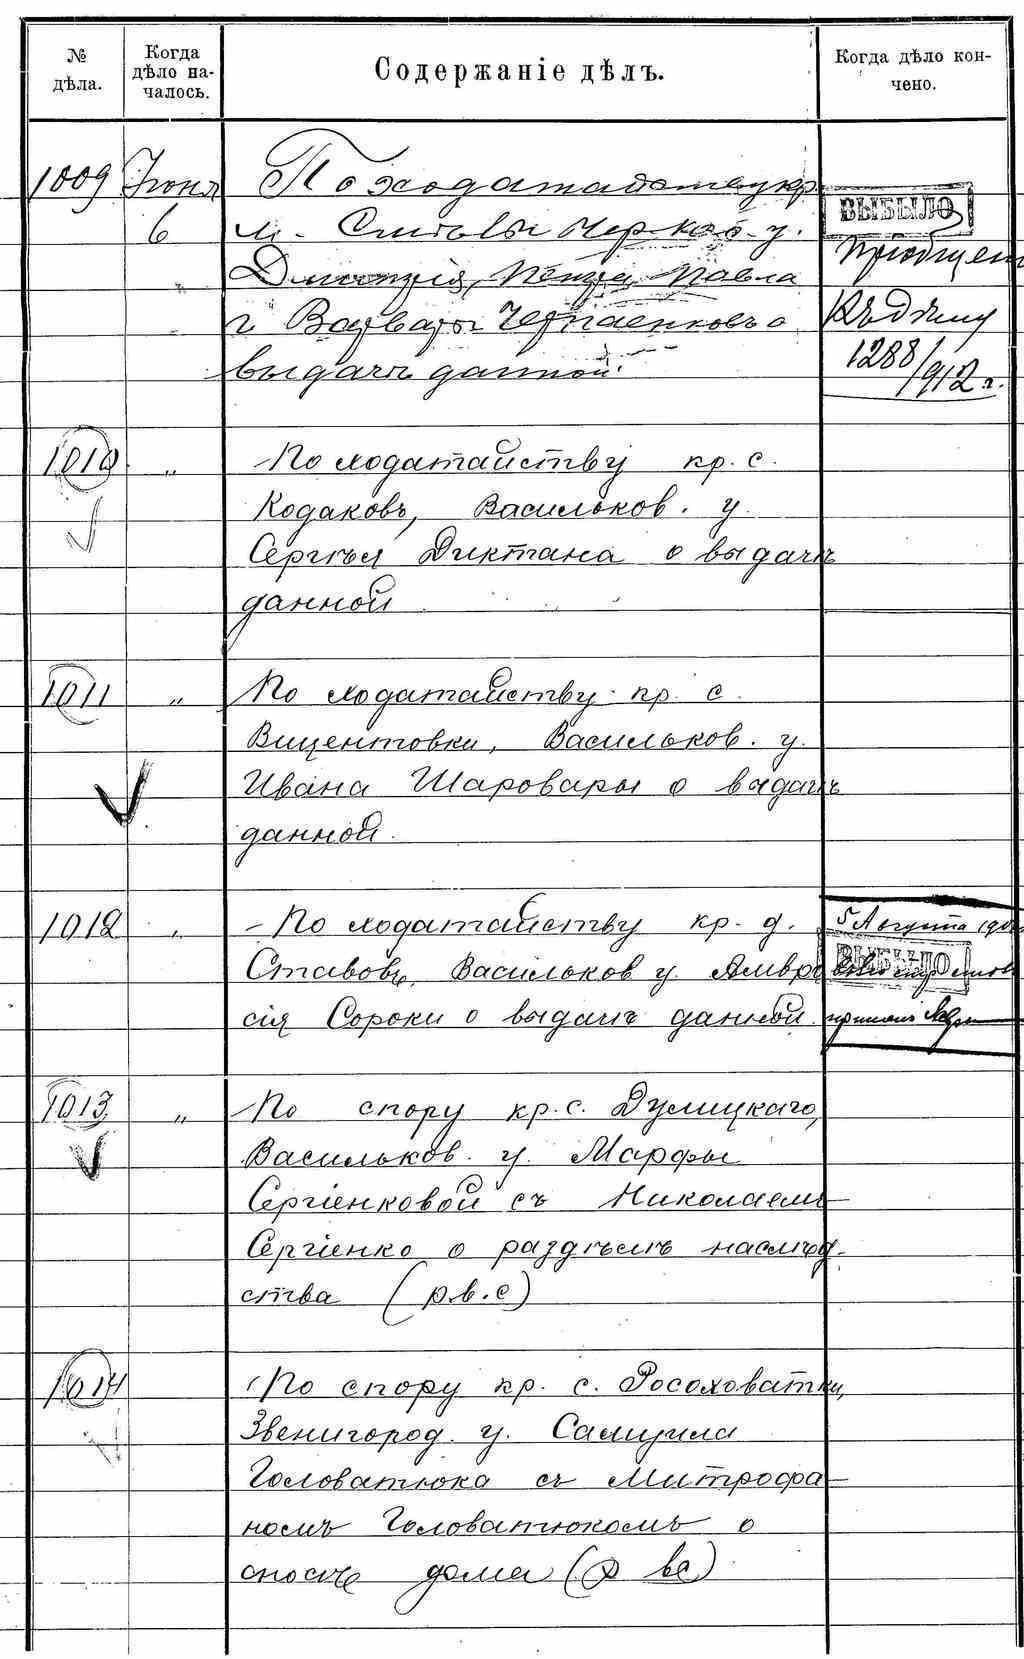 № дѣла.
Когда дѣло на-
чалось.
Содержаніе дѣлъ.
Когда дѣло кон-
чено.
1009 Іюня 6
По ходатайству кр.
м. Смѣлы Черкас. у.
Дмитрія, Петра, Павла
и Варвары Черпаенковъ о
выдачѣ данной.
ВЫБЫЛО
Пріобщено
Къ дѣлу
1288/912 г.
1010 „ По ходатайству кр. с.
Кодаковъ, Васильков. у.
Сергѣя Диктана о выдачѣ
данной
1011 „ По ходатайству кр. с.
Вицентовки, Васильков. у.
Ивана Шаровары о выдачѣ
данной.
1012 „ По ходатайству кр. д.
Ставовъ, Васильков у. Амвро
сія Сороки о выдачѣ данной.
5 Августа
ВЫБЫЛО
1013 „ По спору кр. с. Дулицкаго,
Васильков. у. Марфы
Сергіенковой съ Николаемъ
Сергіенко о раздѣлѣ наслѣд-
ства (р.в.с)
1014 По спору кр. с. Росоховатки,
Звенигород. у. Самуила
Головатюка съ Митрофа-
номъ Головатюкомъ о
сносѣ дома (р вс)